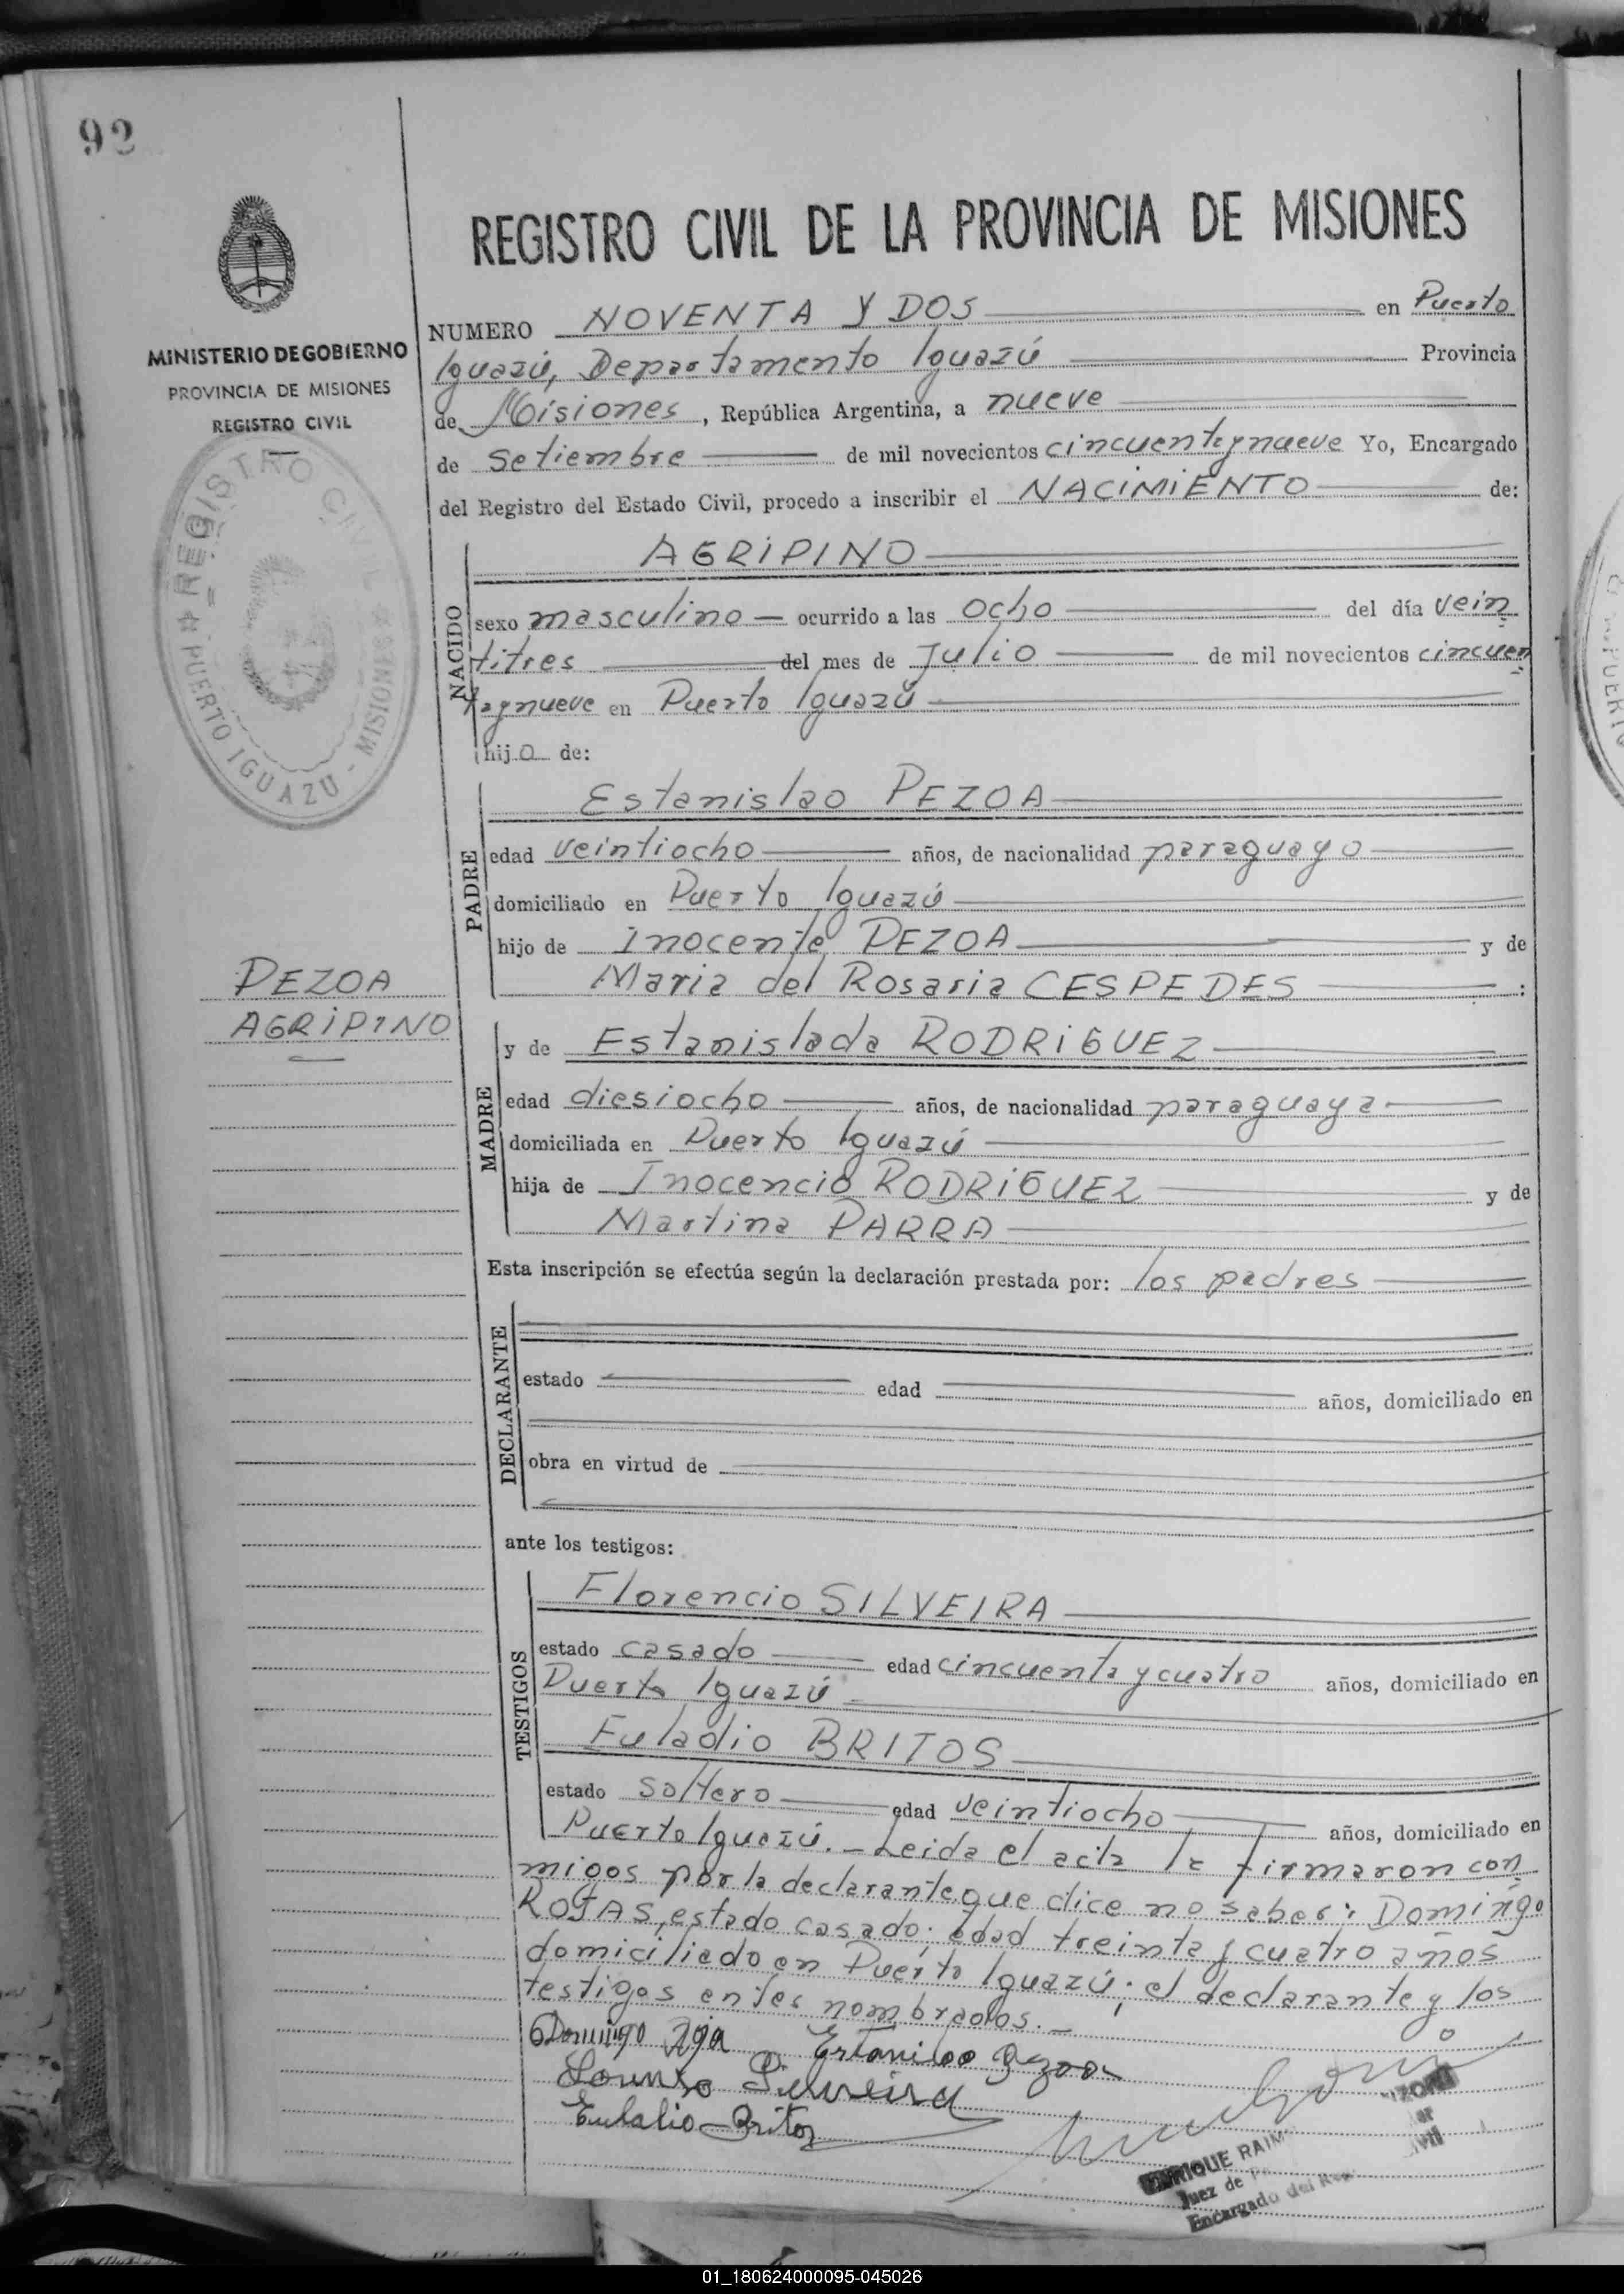 92
MINISTERIO DE GOBIERNO
PROVINCIA DE MISIONES
REGISTRO CIVIL
REGISTRO CIVIL
PUERTO IGUAZU - MISIONES
REGISTRO CIVIL DE LA PROVINCIA DE MISIONES
NUMERO NOVENTA Y DOS en Puerto
Iguazú, Departamento Iguazú Provincia
de Misiones, República Argentina, a nueve
de Setiembre de mil novecientos cincuentaynueve Yo, Encargado
del Registro del Estado Civil, procedo a inscribir el NACIMIENTO de:
NACIDO
AGRIPINO
sexo masculino — ocurrido a las ocho del día vein
titres del mes de Julio de mil novecientos cincuen
taynueve en Puerto Iguazú
hijo de:
PADRE
Estanislao PEZOA
edad veintiocho años, de nacionalidad paraguayo
domiciliado en Puerto Iguazú
hijo de Inocente PEZOA y de
Maria del Rosaria CESPEDES :
PEZOA
AGRIPINO
MADRE
y de Estanislada RODRIGUEZ
edad diesiocho años, de nacionalidad paraguaya
domiciliada en Puerto Iguazú
hija de Inocencio RODRIGUEZ y de
Martina PARRA
Esta inscripción se efectúa según la declaración prestada por: los padres
DECLARANTE
estado edad años, domiciliado en
obra en virtud de
ante los testigos:
TESTIGOS
Florencio SILVEIRA
estado casado edad cincuenta y cuatro años, domiciliado en
Puerto Iguazú
Euladio BRITOS
estado soltero edad veintiocho años, domiciliado en
Puerto Iguazú.- Leida el acta la firmaron con
migos por la declarante que dice no saber: Domingo
ROJAS, estado casado; edad treinta y cuatro años
domiciliado en Puerto Iguazú; el declarante y los
testigos antes nombrados.-
Domingo Estanislao Pezoa
Silveira
Eulalio Britos
ENRIQUE
Juez de
Encargado del
01_180624000095-045026